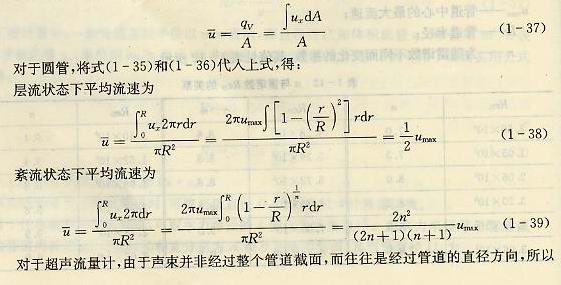 ū = q_V / A = ∫u_x dA / A (1-37)
对于圆管,将式(1-35)和(1-36)代入上式,得:
层流状态下平均流速为
ū = ∫₀ᴿ u_r 2πrdr / πR² = 2πu_max ∫ [1 - (r/R)²] rdr / πR² = 1/2 u_max (1-38)
紊流状态下平均流速为
ū = ∫₀ᴿ u_r 2πdr / πR² = 2πu_max ∫₀ᴿ (1 - r/R)^(1/n) rdr / πR² = 2n² / (2n+1)(n+1) u_max (1-39)
对于超声流量计,由于声束并非经过整个管道截面,而往往是经过管道的直径方向,所以